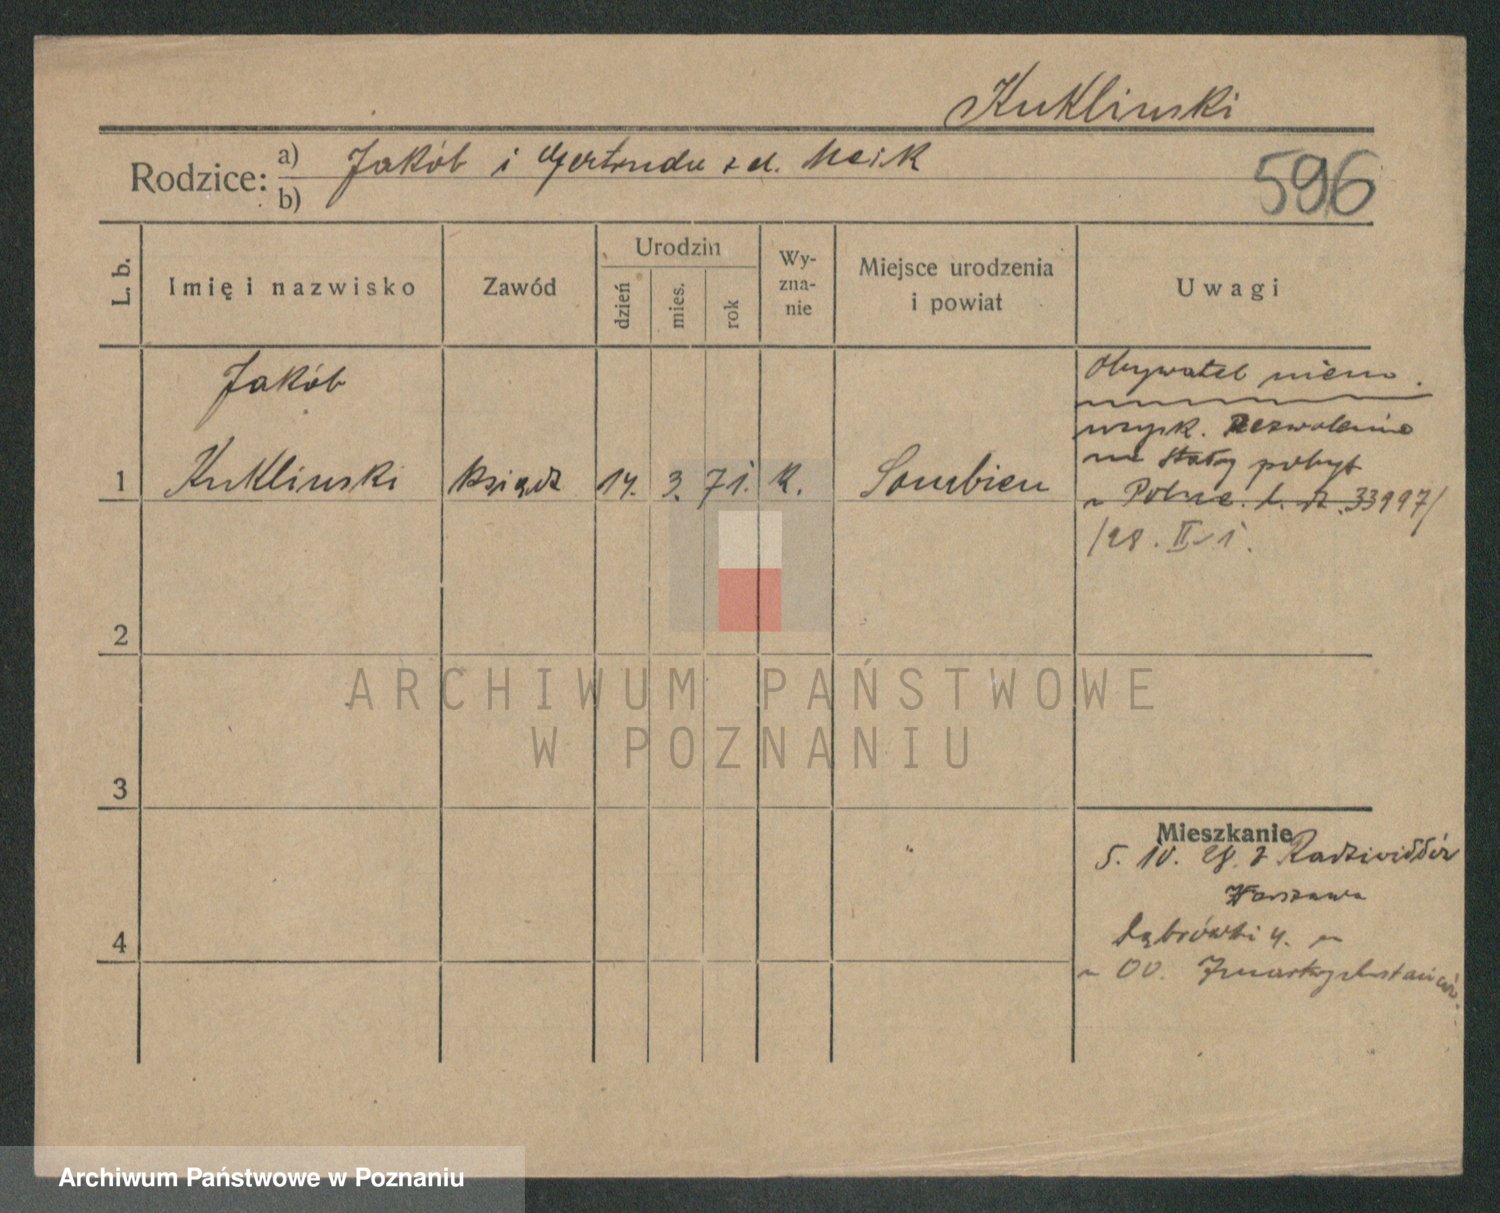 Kuklinski
Rodzice: a) Jakób i Gertruda z d. Noik
b)
596
L. b.
Imię i nazwisko
Zawód
Urodzin
dzień
mies.
rok
Wy-
zna-
nie
Miejsce urodzenia
i powiat
Uwagi
Jakób
1 Kuklinski ksiądz 14. 3. 71. k. Sombien
Obywatel niem.
uzysk. zezwolenie
na stały pobyt
w Polsce. l. dz. 33997/
/28. II-1.
2
3
4
Mieszkanie
5. 10. 28. z
Warszawa
Dąbrówki 4. m
u OO. Zmartwychwstańców.
ARCHIWUM PAŃSTWOWE
W POZNANIU
Archiwum Państwowe w Poznaniu